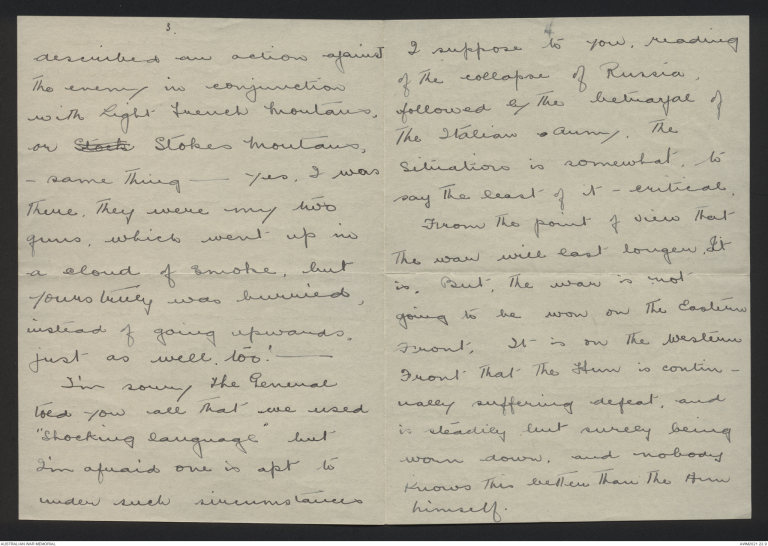 3.
described an action against
the enemy in conjunction
with Light Trench Mortars,
or Stock Stokes Mortars,
- same thing - Yes, I was
there. They were my two
guns, which went up in
a cloud of smoke, but
yours truly was burried,
instead of going upwards,
just as well, too! -
I'm sorry the General
told you all that we used
"Shocking language" but
I'm afraid one is apt to
under such circumstances
4
I suppose to you, reading
of the collapse of Russia,
followed by the betrayal of
the Italian Army. The
Situation is somewhat, to
say the least of it - critical.
From the point of view that
the war will last longer, It
is. But, the war is not
going to be won on the Eastern
Front. It is on the Western
Front that the Hun is contin-
ually suffering defeat, and
is steadily but surely being
worn down, and nobody
knows this better than the Hun
himself.
AUSTRALIAN WAR MEMORIAL